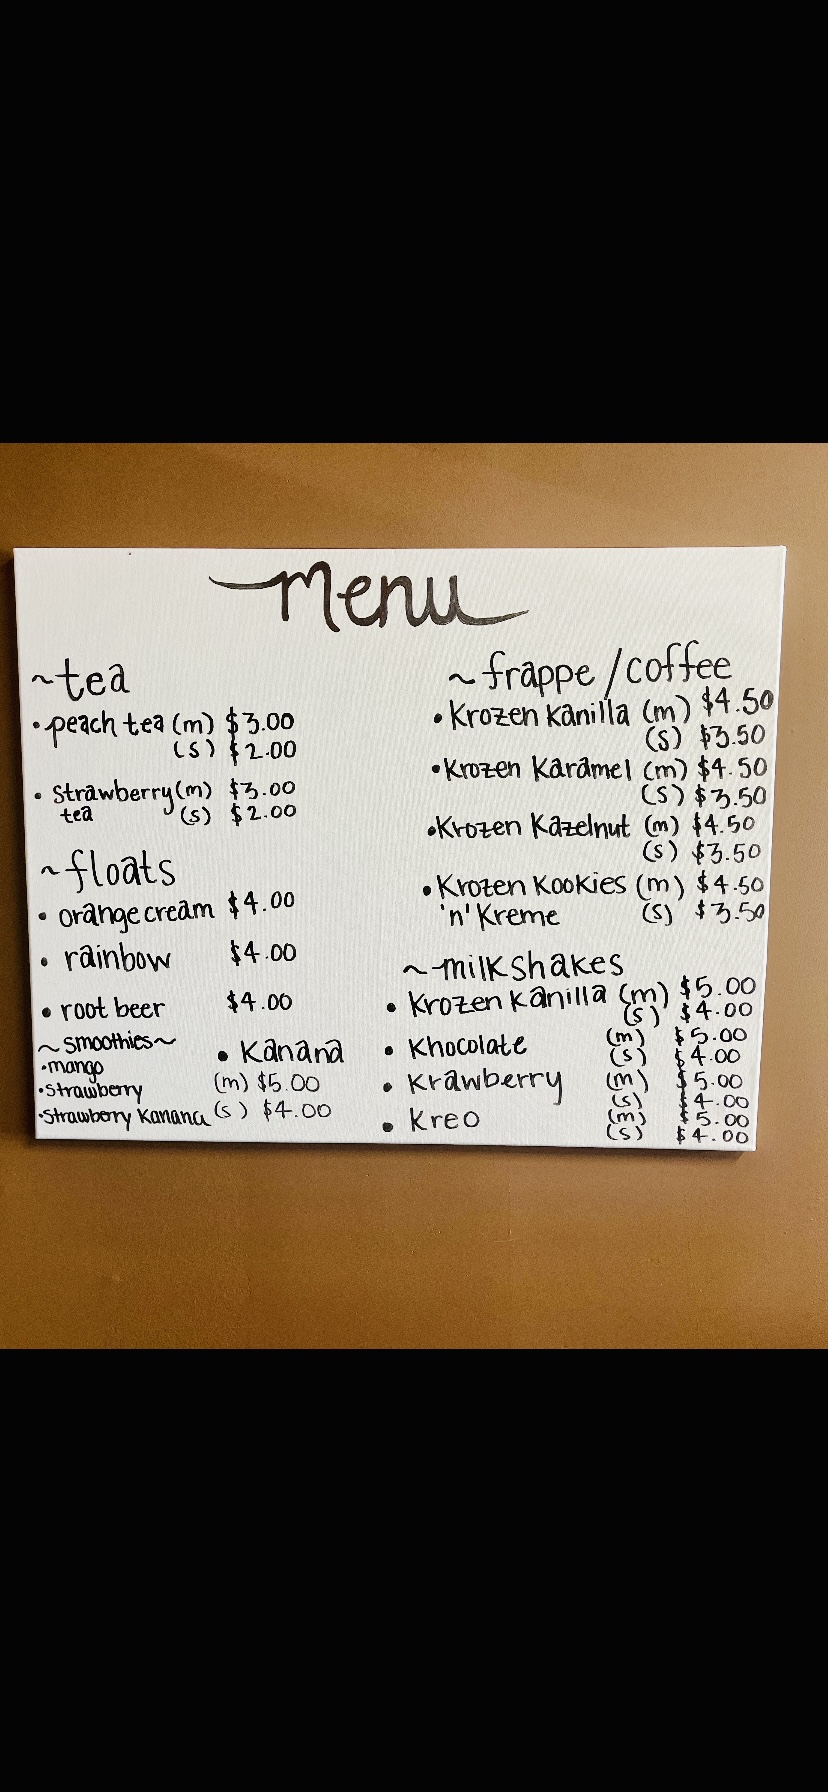 Menu
~tea
• peach tea (m) $3.00
(s) $2.00
• Strawberry (m) $3.00
tea (s) $2.00
~floats
• orange cream $4.00
• rainbow $4.00
• root beer $4.00
~smoothies~
• mango
• strawberry
• strawberry Kanana
• Kanana
(m) $5.00
(s) $4.00
~frappe/coffee
• Krozen Kanilla (m) $4.50
(s) $3.50
• Krozen Karamel (m) $4.50
(s) $3.50
• Krozen Kazelnut (m) $4.50
(s) $3.50
• Krozen Kookies (m) $4.50
'n' Kreme (s) $3.50
~milkshakes
• Krozen Kanilla (m) $5.00
(s) $4.00
• Khocolate (m) $5.00
(s) $4.00
• Krawberry (m) $5.00
(s) $4.00
• Kreo (m) $5.00
(s) $4.00